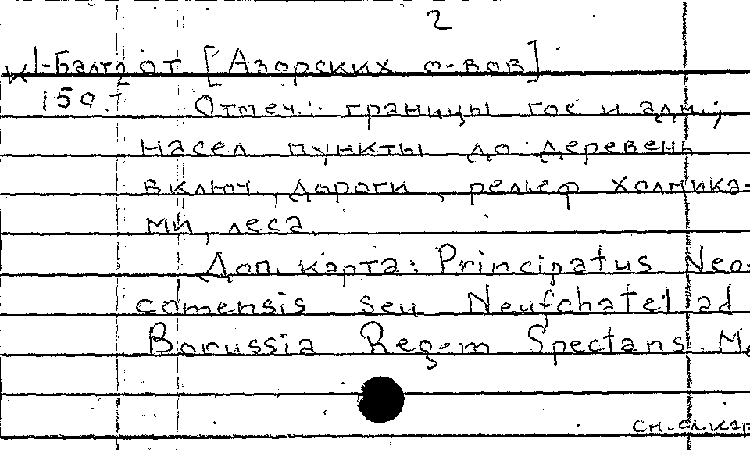 2
от [Азорских о-вов]
150.
Отмеч.: границы гос и адм.;
насел пункты до деревень
включ., дороги, рельеф холмика-
ми, леса.
Доп. карта: Principatus Neo-
comensis seu Neufchatel ad
Borussia Regem Spectans. M
см. сл. кар